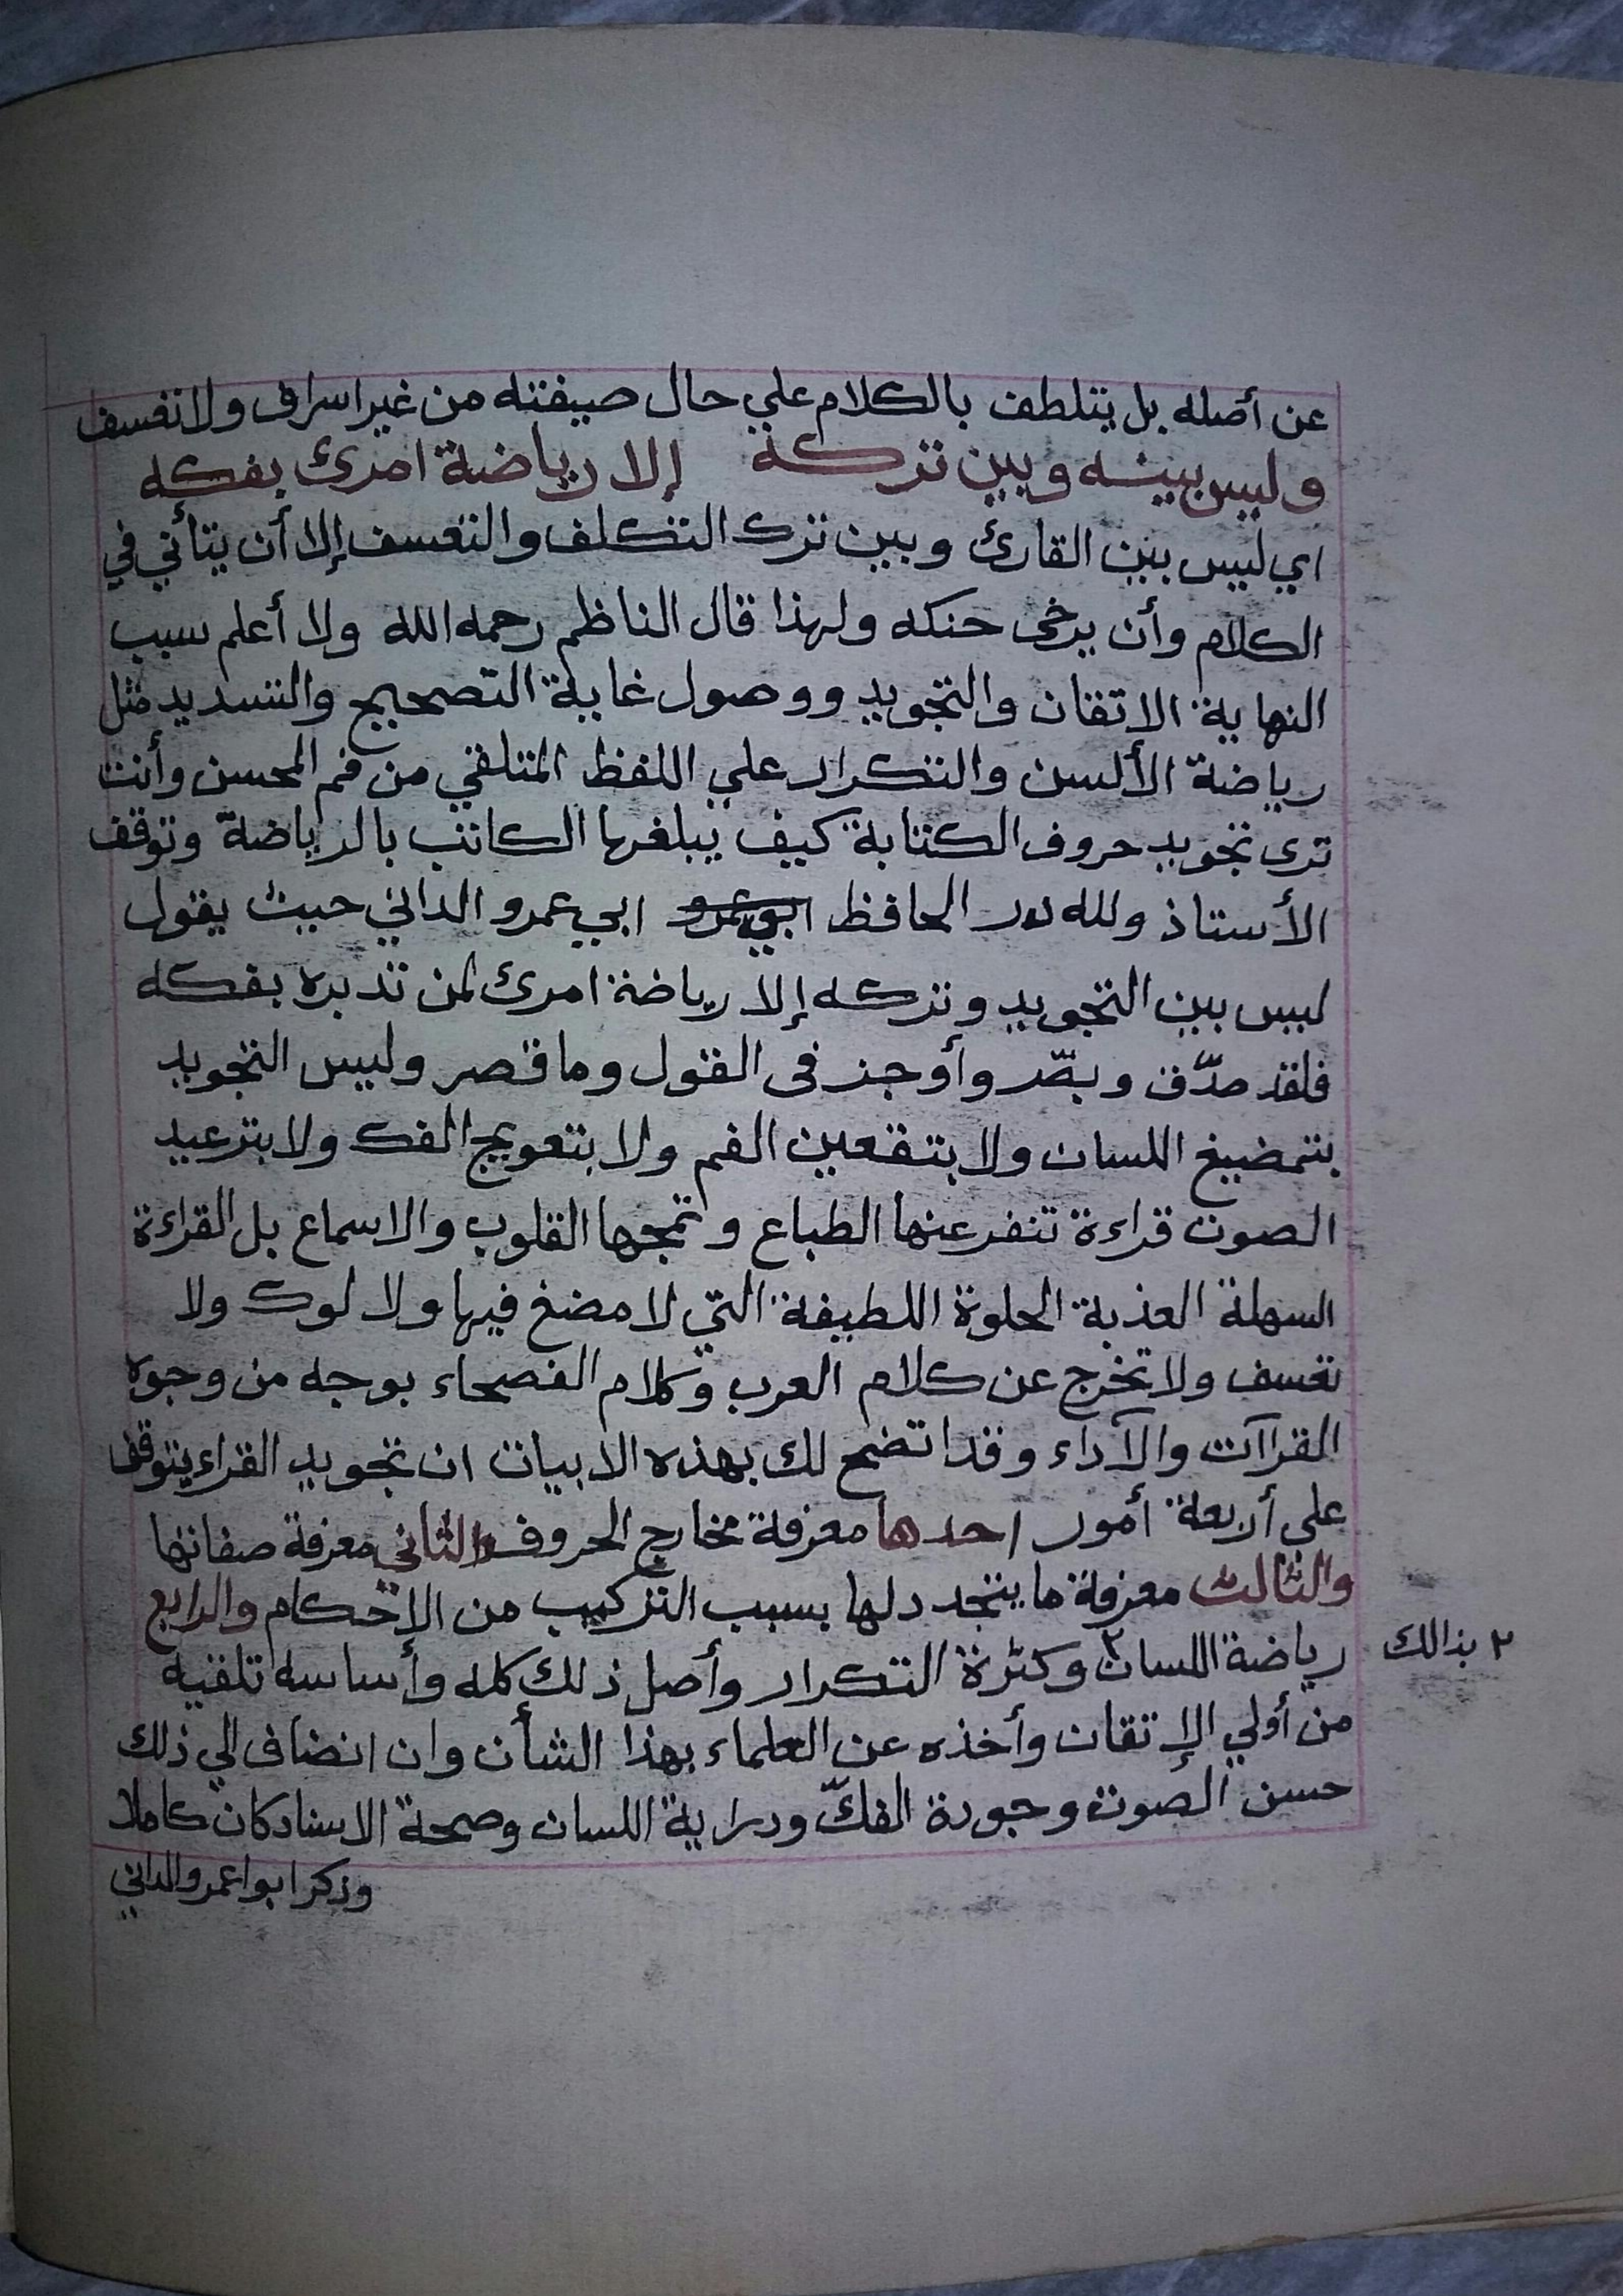 عن أصله بل يتلطف بالكلام علي حال صيفته من غير اسراف ولا تعسف
وليس بينه وبين تركه إلا رياضة امرئ بفكه
اي ليس بين القارئ وبين ترك التكلف والتعسف إلا أن يتأني في
الكلام وأن يرخى حنكه ولهذا قال الناظم رحمه الله ولا أعلم سبب
النهاية الاتقان والتجويد ووصول غاية التصحيح والتسديد مثل
رياضة الألسن والتكرار علي اللفظ المتلقي من فم المحسن وأنت
ترى تجويد حروف الكتابة كيف يبلغها الكاتب بالرياضة وتوقف
الأستاذ ولله در الحافظ ابي عمرو ابي عمرو الداني حيث يقول
ليس بين التجويد وتركه إلا رياضة امرئ لمن تدبره بفكه
فلقد صدّق وبصّر وأوجز فى القول وما قصر وليس التجويد
بتمضيغ اللسان ولا بتقعين الفم ولا بتعويج الفك ولا بترعيد
الصوت قراءة تنفر عنها الطباع وتمجها القلوب والاسماع بل القراءة
السهلة العذبة الحلوة اللطيفة التي لا مضغ فيها ولا لوك ولا
تعسف ولا تخرج عن كلام العرب وكلام الفصحاء بوجه من وجوه
القراآت والآداء وقد اتضح لك بهذه الابيات ان تجويد القراء يتوقف
على أربعة أمور احدها معرفة مخارج الحروف والثاني معرفة صفاتها
والثالث معرفة ما يتجدد لها بسبب التركيب من الاحكام والرابع
رياضة اللسان٢ وكثرة التكرار وأصل ذلك كله وأساسه تلقيه
٢ بذالك
من أولي الإتقان وأخذه عن العلماء بهذا الشأن وان انضاف الي ذلك
حسن الصوت وجودة الفكّ ودراية اللسان وصحة الاسناد كان كاملا
وذكر ابوا عمرو الداني